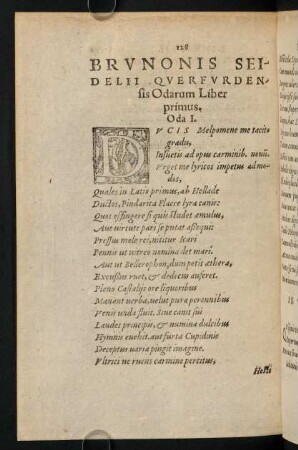 120
BRVNONIS SEI-
DELII QVERFVRDEN-
sis Odarum Liber
primus.
Oda I.
DVCIS Melpomene me tacito
gradu,
Insuetis ad opus carminib. nouū.
Vrget me lyricos impetus ad mo-
dos,
Quales in Latio primus, ab Hellade
Ductos, Pindarica Flacce lyra canis:
Quos effingere si quis studet æmulus,
Aut virtute pars se putat assequi
Pressus mole rei, nititur Icari
Pennis ut vitreo nomina det mari.
Aut ut Bellerophon, dum petit æthera,
Excussus ruet, & dedecus auferet.
Pleno Castalijs ore liquoribus
Manant verba, velut pura perennibus
Venis unda fluit. Siue canis siui
Laudes principis, & numina dulcibus
Hymnis euehit. aut furta Cupidinis
Deceptus varia pingit imagine.
Vltrici ne ruens carmine pertitus,